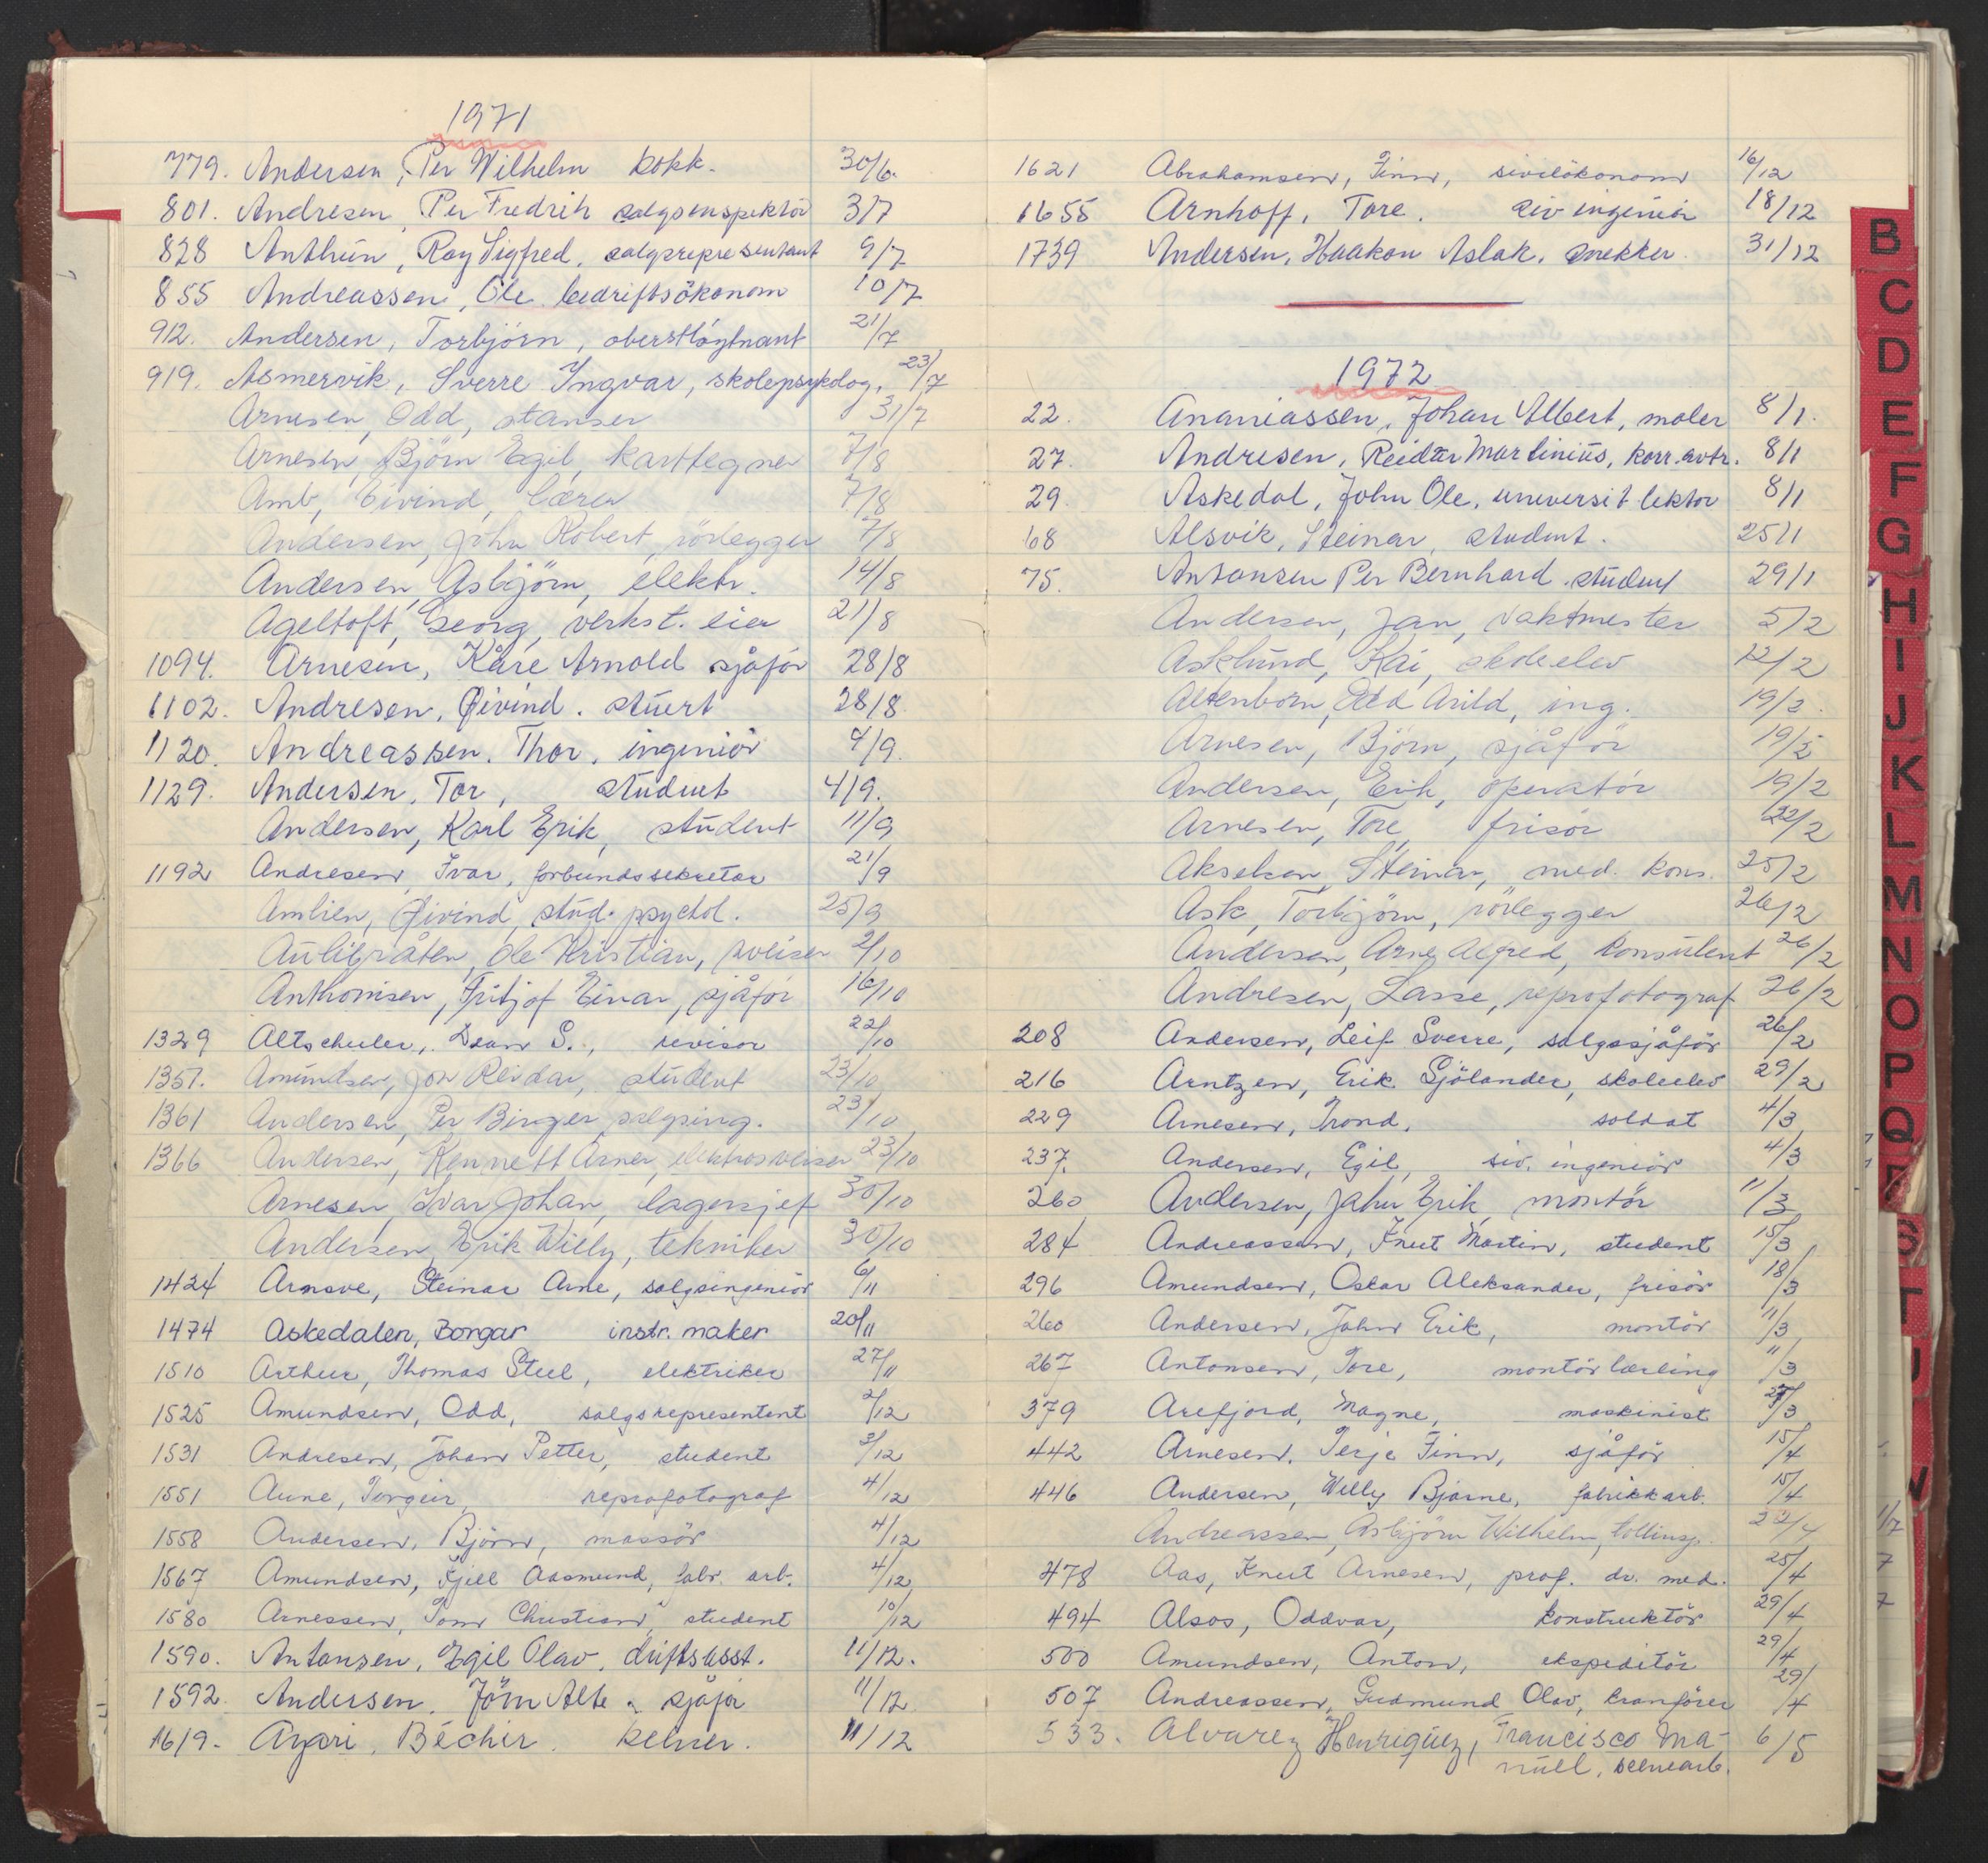 1971
779. Andersen, Per Wilhelm kokk. 30/6.
801. Andresen, Per Fredrik salgsinspektör 3/7
828 Anthun, Roy Sigfred. salgsrepresentant 9/7
855 Andreassen, Ole bedriftsökonom 10/7
912. Andersen, Torbjörn, oberstlöytnant 21/7
919. Asmervik, Sverre Ingvar, skolepsykolog. 23/7
Arnesen, Odd, stanser 31/7
Arnesen, Björn Egil, karttegner 7/8
Amb, Eivind, lærer 7/8
Andersen, John Robert, rörlegger 7/8
Andersen, Asbjörn, elektr. 14/8
Ageltoft, Georg, verkst. eier 21/8
1094. Arnesen, Kåre Arnold sjåför 28/8
1102. Andresen, Øivind. stuert 28/8.
1120. Andreassen. Thor. ingeniör 4/9.
1129. Andersen. Tor, student 4/9.
Andersen, Karl Erik, student 11/9
1192 Andresen, Ivar, forbundssekretær 21/9
Amlien, Øivind, stud. psychol. 25/9
Aulibråten, Ole Kristian, sveiser 2/10
Anthonisen, Fritjof Einar, sjåför 16/10
1329 Altschuler, Dean S., revisor 22/10
1351. Amundsen, Jon Reidar, student 23/10
1361 Andersen, Per Birger, salgsing. 23/10
1366 Andersen, Kennett Arner, elektrosveiser 23/10
Arnesen, Ivar Johan, lagersjef 30/10
Andersen, Erik Willy, tekniker 30/10
1424 Arnsve, Steinar Arne, salgsingeniör 6/11
1474 Askedalen, Borgar instr. maker 20/11
1510 Arthur, Thomas Steel, elektriker 27/11
1525 Amundsen, Odd, salgsrepresentant 2/12
1531 Andresen, Johan Petter, student 3/12
1551 Aune, Torgeir, reprofotograf 4/12
1558 Andersen, Björn, massör 4/12
1567 Amundsen, Kjell Aasmund, fabr. arb. 4/12
1580 Arnessen, Tom Christian, student 10/12
1590. Antonsen, Egil Olav, driftsasst. 11/12.
1592. Andersen, Jörn Atle, sjåför 11/12.
1619. Ayari, Béchir. kelner. 11/12
1621 Abrahamsen, Finn, sivilökonom 16/12
1655 Arnhoff, Tore. siv ingeniör 18/12
1739 Andersen, Haakon Aslak. snekker 31/12
1972
22. Ananiassen, Johan Albert, maler 8/1.
27. Andresen, Reidar Martinius, korr. avtr. 8/1
29. Askedal, John Ole, universit lektor 8/1
68 Alsvik, Steinar, student. 25/1
75. Antonsen Per Bernhard. student 29/1
Andersen, Jan, vaktmester 5/2
Asklund, Kai, skoleelev 12/2
Altenborn, Odd Arild, ing. 19/2.
Arnesen, Björn, sjåför 19/2
Andersen, Erik, operatör 19/2
Arnesen, Tore, frisör 22/2
Akselsen, Steinar, med. kons. 25/2
Ask, Torbjörn, rörlegger 26/2
Andersen, Arne Alfred, konsulent 26/2
Andresen, Lasse, reprofotograf 26/2
208 Andersen, Leif Sverre, salgssjåför 26/2
216 Arntzen, Erik Sjölander, skoleelev 29/2
229 Arnesen, Trond, soldat 4/3
237. Andersen, Egil, siv. ingeniör 4/3
260 Andersen, John Erik, montör 11/3
284 Andreassen, Knut Martin, student 15/3
296 Amundsen, Oskar Aleksander, frisör 18/3
260 Andersen, John Erik, montör 11/3
267 Antonsen, Tore, montörlærling 11/3
379 Arefjord, Magne, maskinist 27/3
442 Arnesen, Terje Finn, sjåför 15/4
446 Andersen, Willy Bjarne, fabrikkarb. 15/4
Andreassen, Asbjörn Wilhelm, tollinsp. 22/4
478 Aas, Knut Arnesen, prof. dr. med. 25/4
494 Alsos, Oddvar, konstruktör 29/4
500 Amundsen, Anton, ekspeditör 29/4
507 Andreassen, Gudmund Olav, kranförer 29/4
533. Alvarez Henriquez, Francisco Ma- 6/5
nuel, scenearb.
B
C
D
E
F
G
H
I
J
K
L
M
N
O
P
Q
S
T